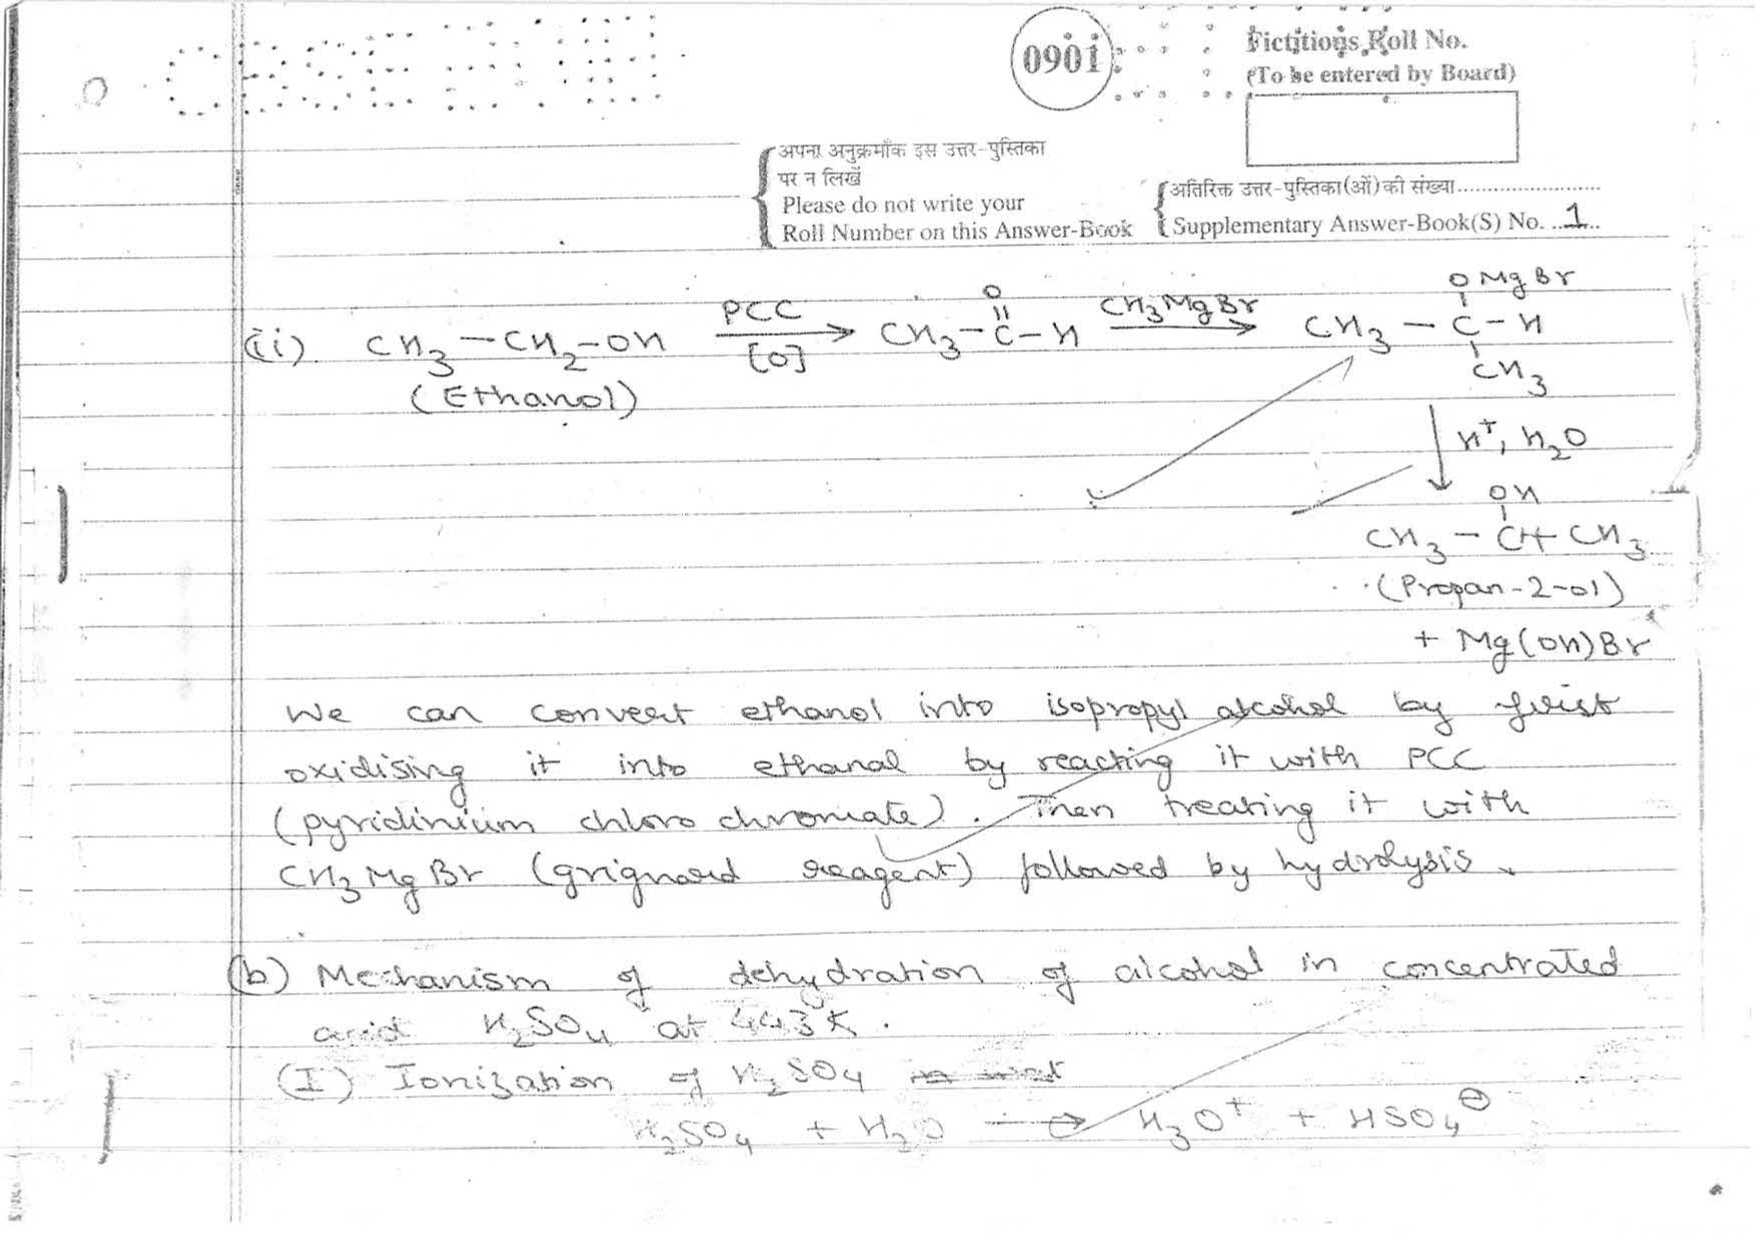 CBSE
0901
Fictitious Roll No.
(To be entered by Board)
अपना अनुक्रमाँक इस उत्तर-पुस्तिका
पर न लिखें
Please do not write your
Roll Number on this Answer-Book
अतिरिक्त उत्तर-पुस्तिका(ओं) की संख्या..............................
Supplementary Answer-Book(S) No. ...1...
OMgBr
O
(ii). CH3 — CH2 — OH PCC [O] → CH3 — C — H CH3MgBr → CH3 — C — H
(Ethanol)
CH3
↓ H+, H2O
OH
CH3 — CH CH3
(Propan-2-ol)
+ Mg(OH)Br
We can convert ethanol into isopropyl alcohol by first
oxidising it into ethanal by reacting it with PCC
(pyridinium chloro chromate). Then treating it with
CH3MgBr (grignard reagent) followed by hydrolysis.
(b) Mechanism of dehydration of alcohol in concentrated
acid H2SO4 at 443K.
(I) Ionization of H2SO4
H2SO4 + H2O → H3O+ + HSO4⊖